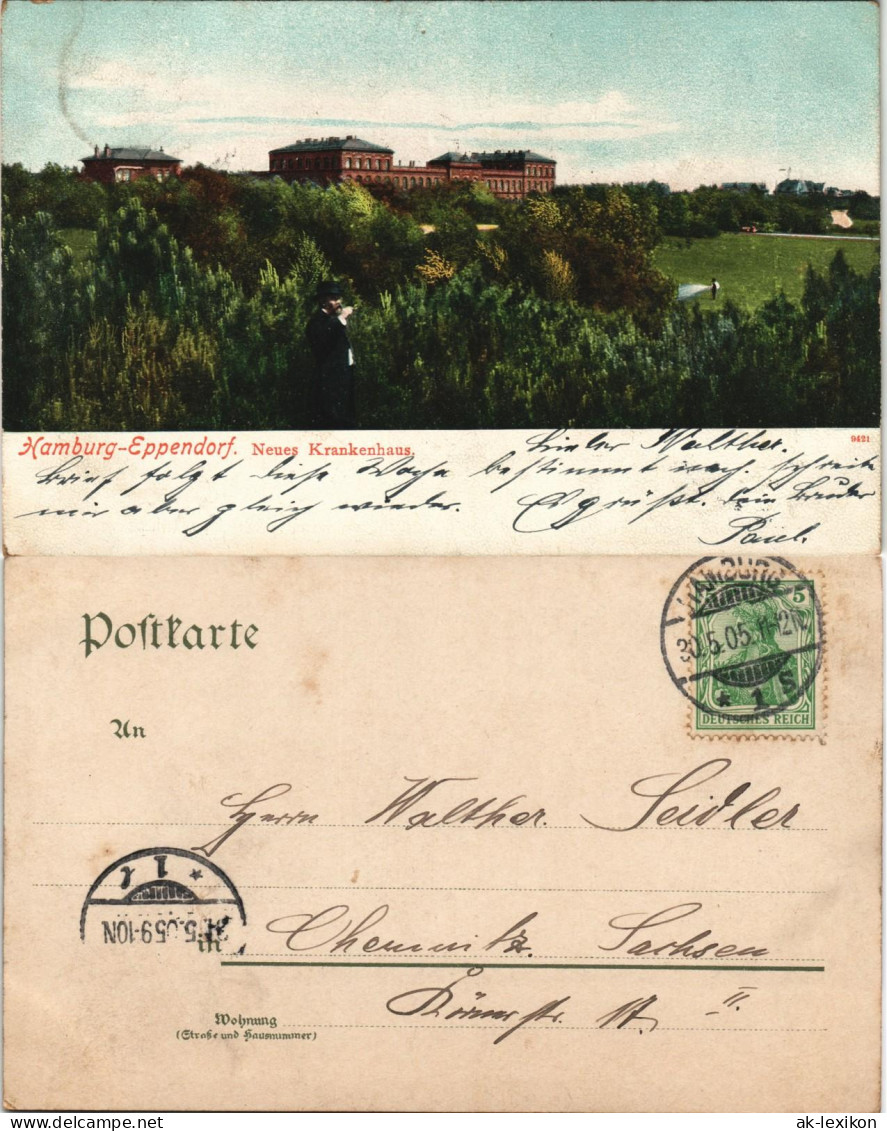 Hamburg-Eppendorf. Neues Krankenhaus.
9421
Lieber Walther.
Brief folgt diese Woche bestimmt nach. Schreibe
mir aber gleich wieder. Es grüßt. Dein Bruder
Paul.
Postkarte
HAMBURG
30.5.05.11-12N.
* 1 S
5
DEUTSCHES REICH
An
Herrn Walther Seidler
* 1 f
31.5.05 9-10N
in Chemnitz. Sachsen
Wohnung
(Straße und Hausnummer)
Körnerstr. 17. II.
ak-lexikon